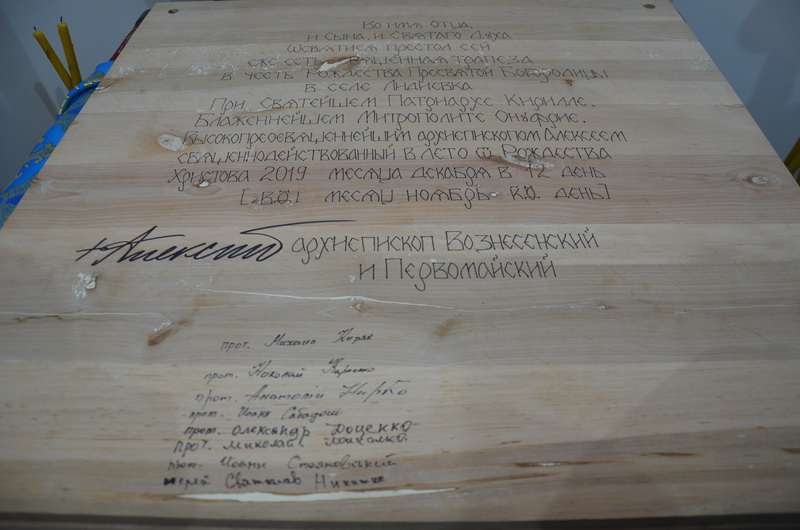 Во имя Отца,
и Сына, и Святаго Духа
Ѡсвятися престол сей
еже есть священная трапеза
в честь Рождества Пресвятой Богородицы
в селе Лидиевка
При, Святейшем Патриархе Кирилле,
Блаженнейшем Митрополите Онуфрие,
Высокопреосвященнейшим архиепископом Алексеем
священнодействованный в лето ѿ Рождества
Христова 2019 месяца декабря в 12 день
месяц ноябрь день]
+Алексий архиепископ Вознесенский
и Первомайский
прот. Михаил
прот. Николай
прот. Анатолій
прот. Иоанн Сабадош
прот. Олександр Доценко
прот. Миколай
прот. Иоанн Стояновский
иерей Святослав